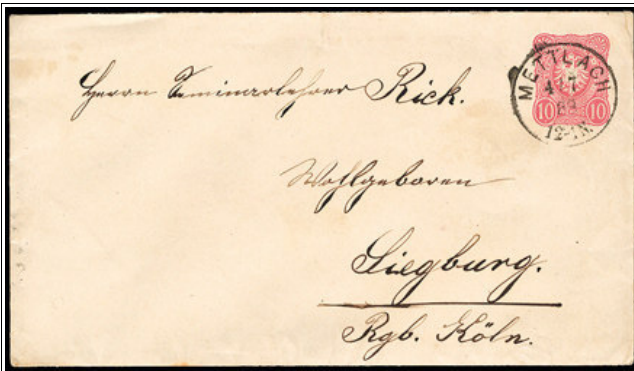 Herrn Seminarlehrer Rick.
Wohlgeboren
Siegburg.
Rgb. Köln.
METTLACH
4 7
12-1N.
10 10